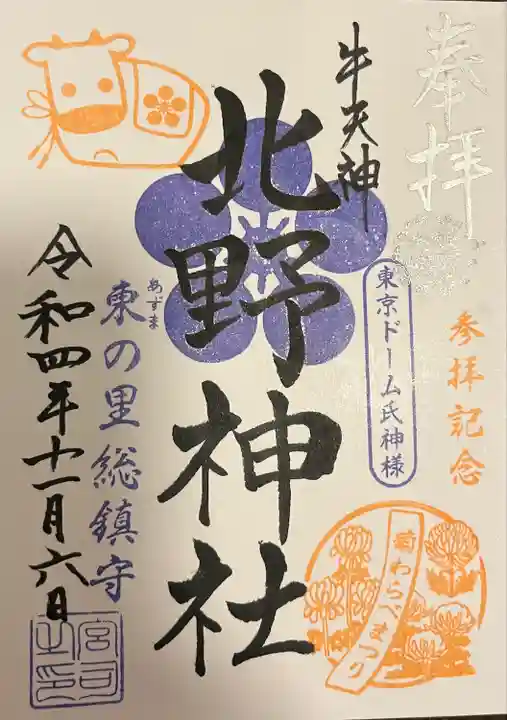 奉拝
参拝記念
東京ドーム氏神様
牛天神
北野神社
東の里総鎮守
あずま
令和四年十一月六日
菊わらべまつり